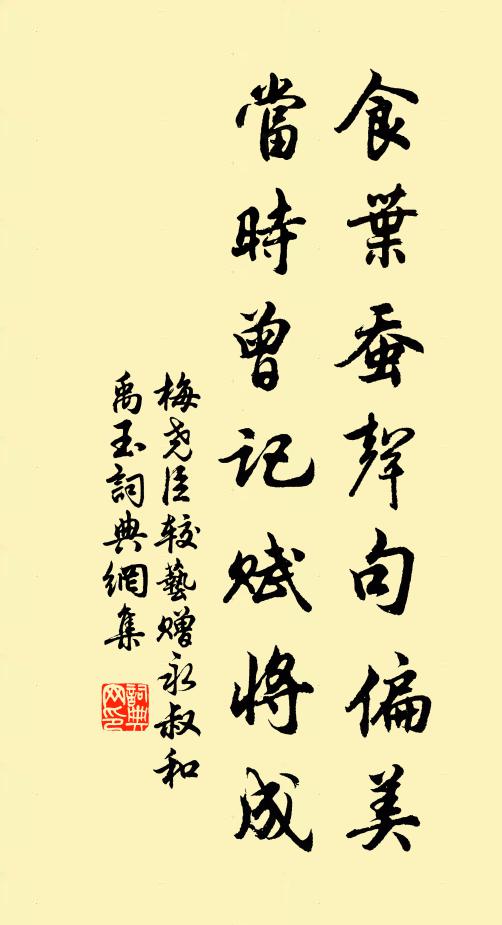 食葉蚕聲句偏美
當時曾记赋將成
梅尧臣较藝赠永叔和
禹玉詞典網集
詞典网印